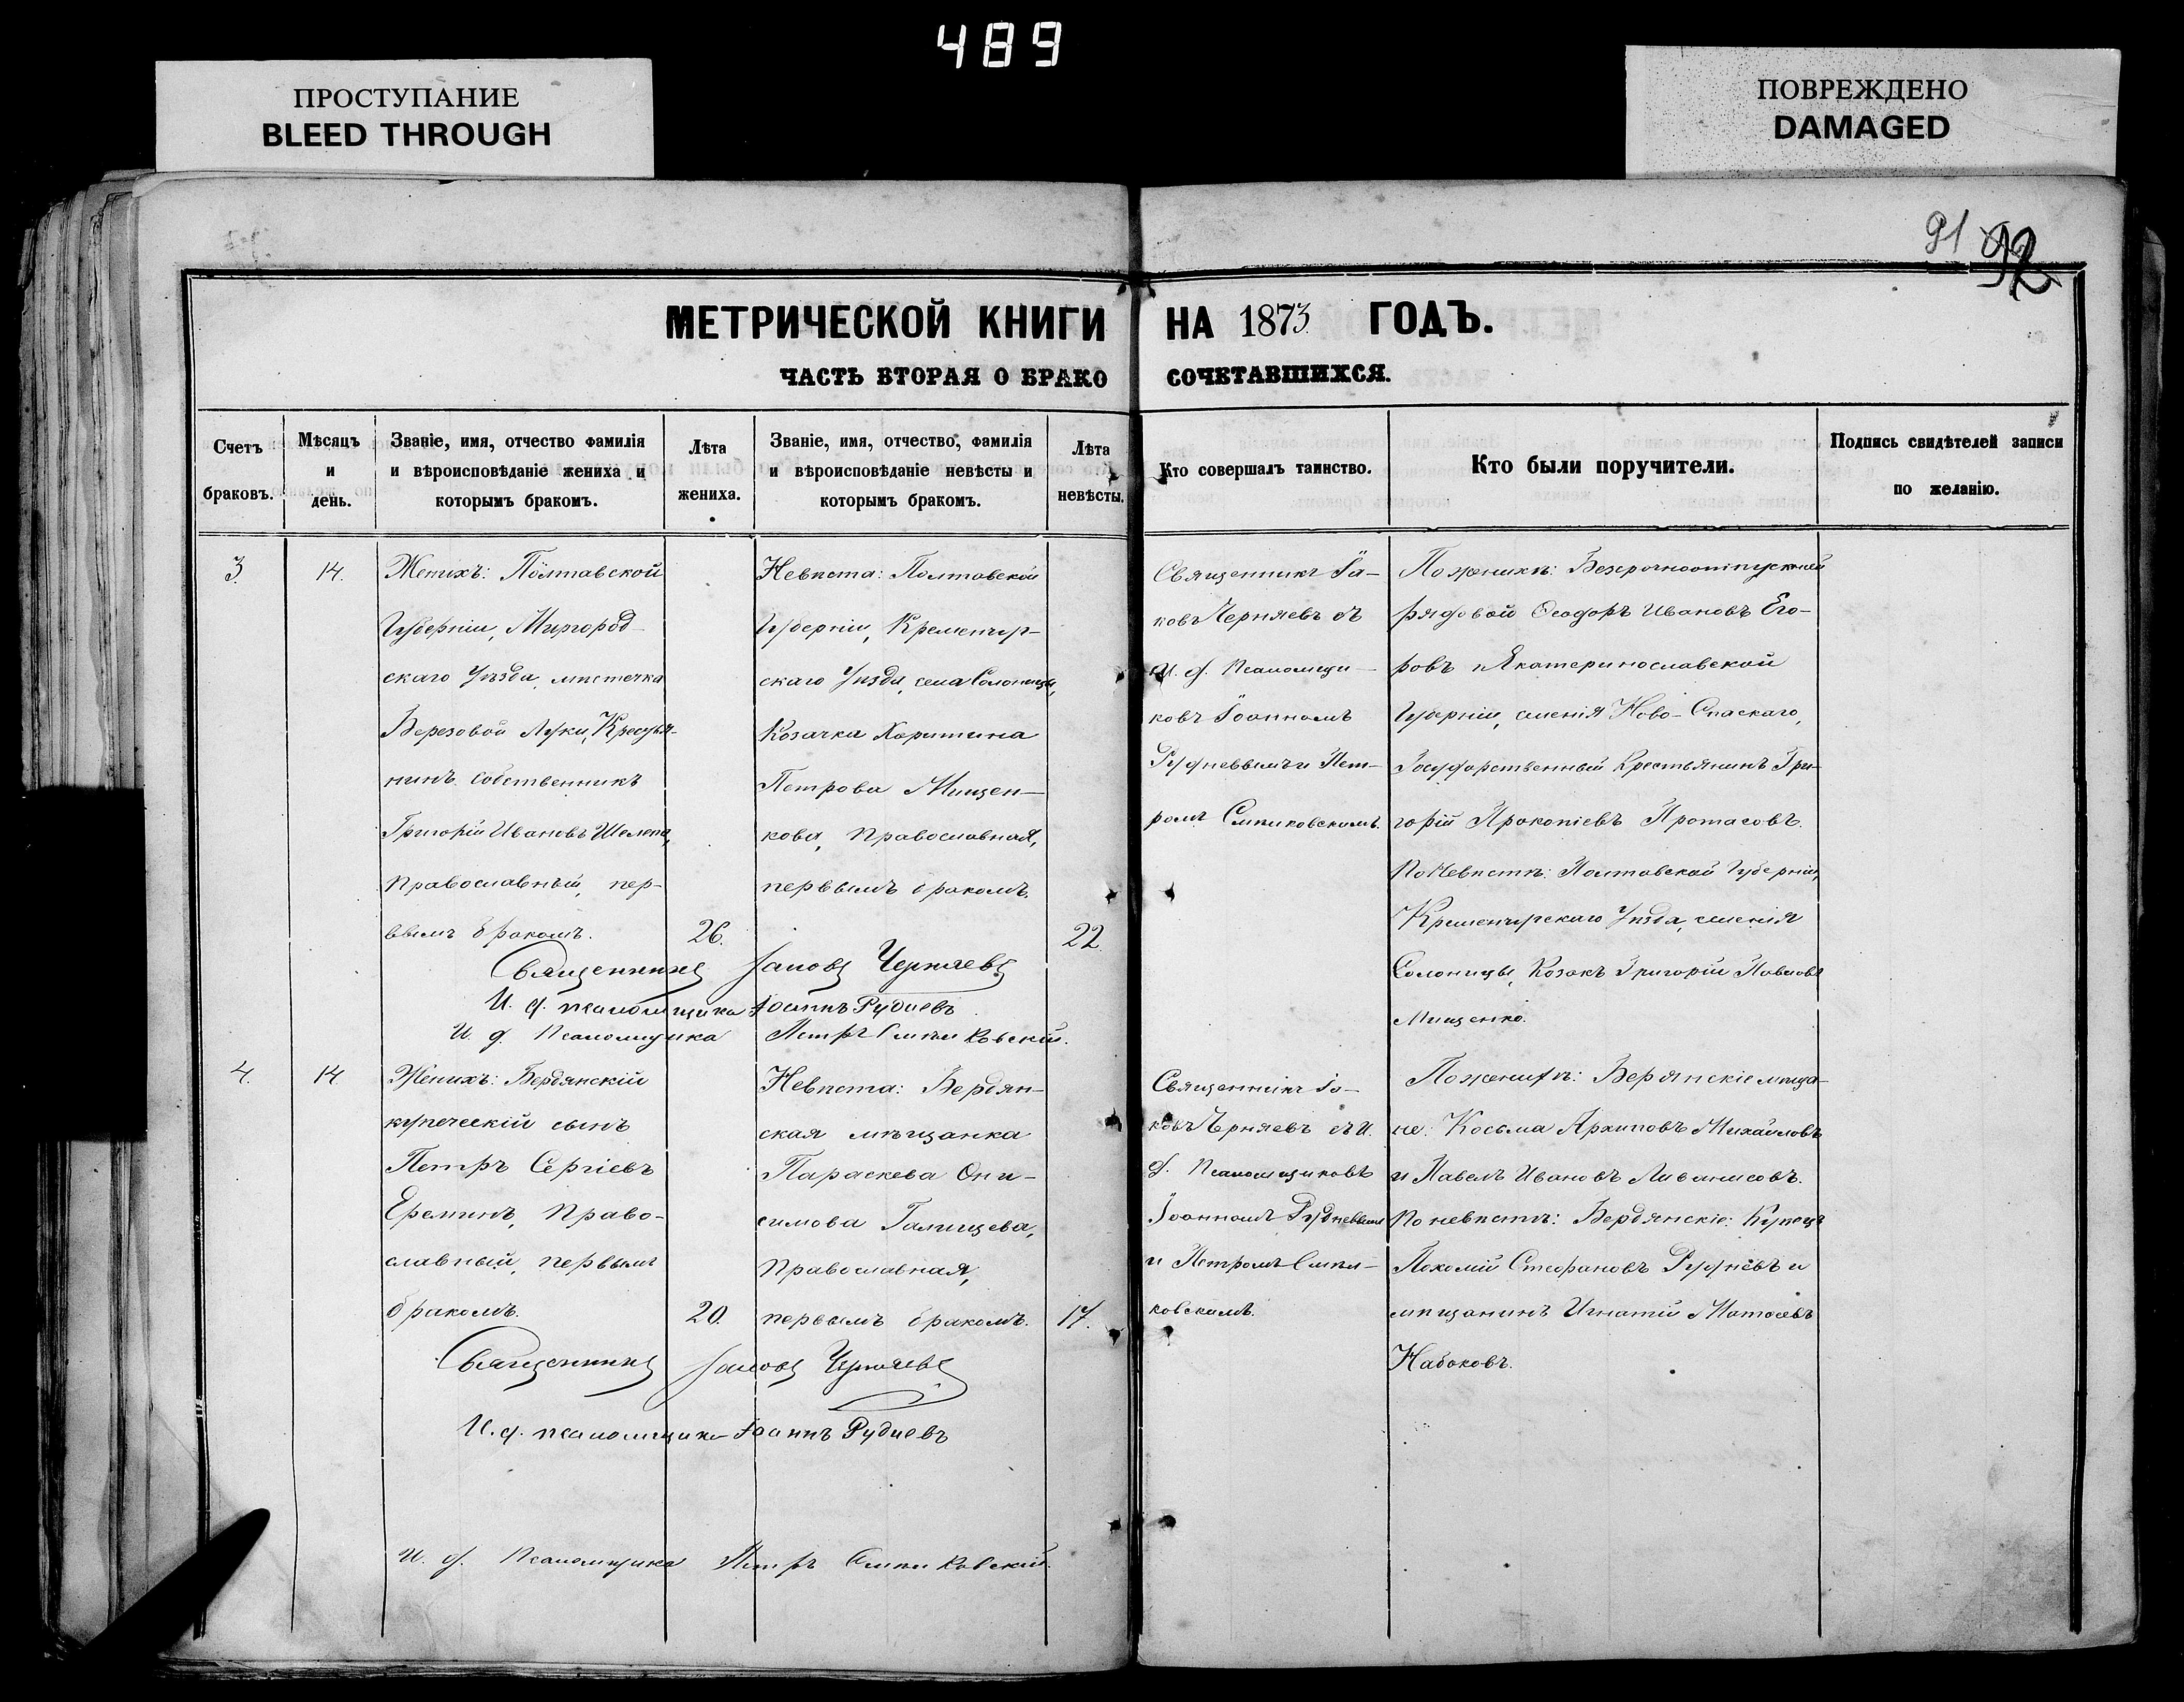 489
ПРОСТУПАНИЕ
BLEED THROUGH
ПОВРЕЖДЕНО
DAMAGED
91 92
МЕТРИЧЕСКОЙ КНИГИ НА 1873 ГОДЪ.
ЧАСТЬ ВТОРАЯ О БРАКО СОЧЕТАВШИХСЯ.
Счетъ
браковъ.
Мѣсяцъ
и
день.
Званіе, имя, отчество фамилія
и вѣроисповѣданіе жениха и
которымъ бракомъ.
Лѣта
жениха.
Званіе, имя, отчество, фамилія
и вѣроисповѣданіе невѣсты и
которымъ бракомъ.
Лѣта
невѣсты.
Кто совершалъ таинство.
Кто были поручители.
Подпись свидѣтелей записи
по желанію.
3.
14.
Женихъ: Полтавской
Губерніи, Миргород-
скаго Уѣзда, мѣстечка
Березовой Луки, Крестья-
нинъ собственникъ
Григорій Ивановъ Шелепа,
Православный, пер-
вымъ бракомъ.
26.
Невѣста: Полтавской
Губерніи, Кременчуг-
скаго Уѣзда, села Солоницы,
Козачка Харитина
Петрова Мищен-
кова, Православная,
первымъ бракомъ.
22.
Священникъ Іа-
ковъ Черняевъ съ
и. д. Псаломщи-
ковъ Іоанномъ
Рудневымъ и Пет-
ромъ Смѣиковскимъ.
По женихѣ: Безсрочноотпускной
рядовой Ѳеодоръ Ивановъ Его-
ровъ и Екатеринославской
Губерніи, имѣнія Ново-Спаскаго,
Государственный Крестьянинъ Гри-
горій Прокопіевъ Протасовъ.
По Невѣстѣ: Полтавской Губерніи,
Кременчугскаго Уѣзда, имѣнія
Солоницы, Козакъ Григорій Павловъ
Мищенко.
Священникъ Іаковъ Черняевъ
И. д. псаломщика Іоаннъ Рудневъ
И. д. Псаломщика Петръ Смѣиковскій.
4.
14.
Женихъ: Бердянскій
купеческій сынъ
Петръ Сергіевъ
Ереминъ, Право-
славный, первымъ
бракомъ.
20.
Невѣста: Бердян-
ская мѣщанка
Параскева Они-
симова Галищева,
Православная,
первымъ бракомъ.
17.
Священникъ Іа-
ковъ Черняевъ съ И.
д. Псаломщиковъ
Іоанномъ Рудневымъ
и Петромъ Смѣи-
ковскимъ.
По женихѣ: Бердянскіе мѣща-
не: Косьма Архиповъ Михайловъ
и Павелъ Ивановъ Ливанисовъ.
По невѣстѣ: Бердянскіе: Купецъ
Пахомій Стефановъ Рудневъ и
мѣщанинъ Игнатій Матѳеевъ
Набоковъ.
Священникъ Іаковъ Черняевъ
И. д. псаломщика Іоаннъ Рудневъ
И. д. Псаломщика Петръ Смѣиковскій.